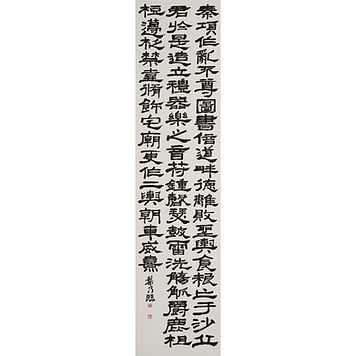 秦項作亂不尊圖書倍道畔德離敗聖輿食糧亡于沙丘
君於是造立禮器樂之音符鍾磬瑟鼓雷洗觴觚爵鹿柤
梪籩柉禁壺脩飾宅廟更作二輿朝車威熹
臨